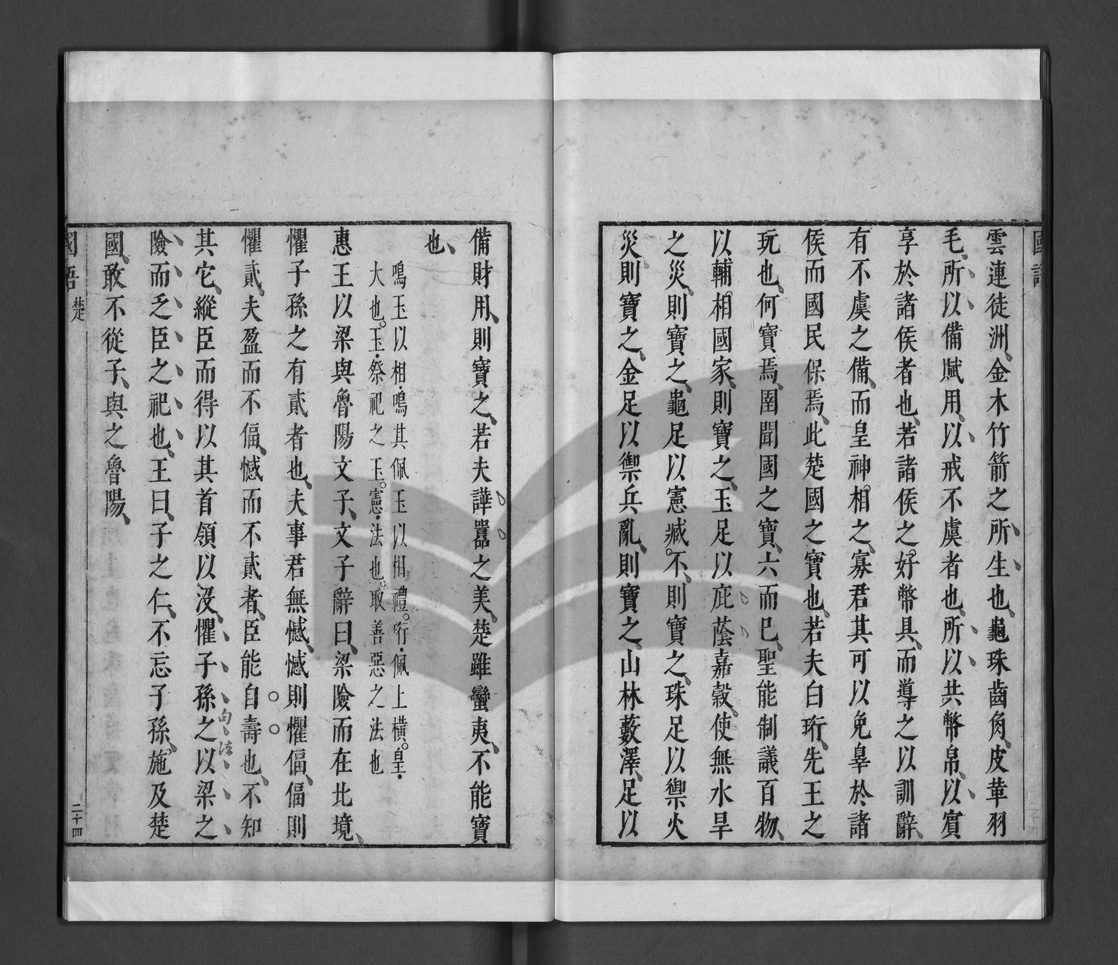 國語
雲連徒洲金木竹箭之所生也龜珠齒角皮革羽
毛所以備賦用以戒不虞者也所以共幣帛以賓
享於諸侯者也若諸侯之好幣具而導之以訓辭
有不虞之備而皇神相之寡君其可以免辠於諸
侯而國民保焉此楚國之寶也若夫白珩先王之
玩也何寶焉圉聞國之寶六而已聖能制議百物
以輔相國家則寶之玉足以庇蔭嘉穀使無水旱
之災則寶之龜足以憲臧不則寶之珠足以禦火
災則寶之金足以禦兵亂則寶之山林藪澤足以
備財用則寶之若夫譁囂之美楚雖蠻夷不能寶
也
鳴玉以相鳴其佩玉以相禮珩佩上橫皇
大也玉祭祀之玉憲法也取善惡之法也
惠王以梁與魯陽文子文子辭曰梁險而在北境
懼子孫之有貳者也夫事君無憾憾則懼偪偪則
懼貳夫盈而不偪憾而不貳者臣能自壽也不知
其它縱臣而得以其首領以沒懼子孫之以梁之
句法
險而乏臣之祀也王曰子之仁不忘子孫施及楚
國敢不從子與之魯陽
國語 楚
二十四